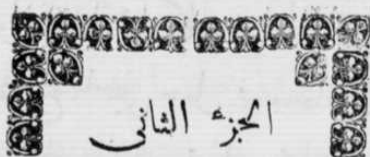 الجزء الثانى